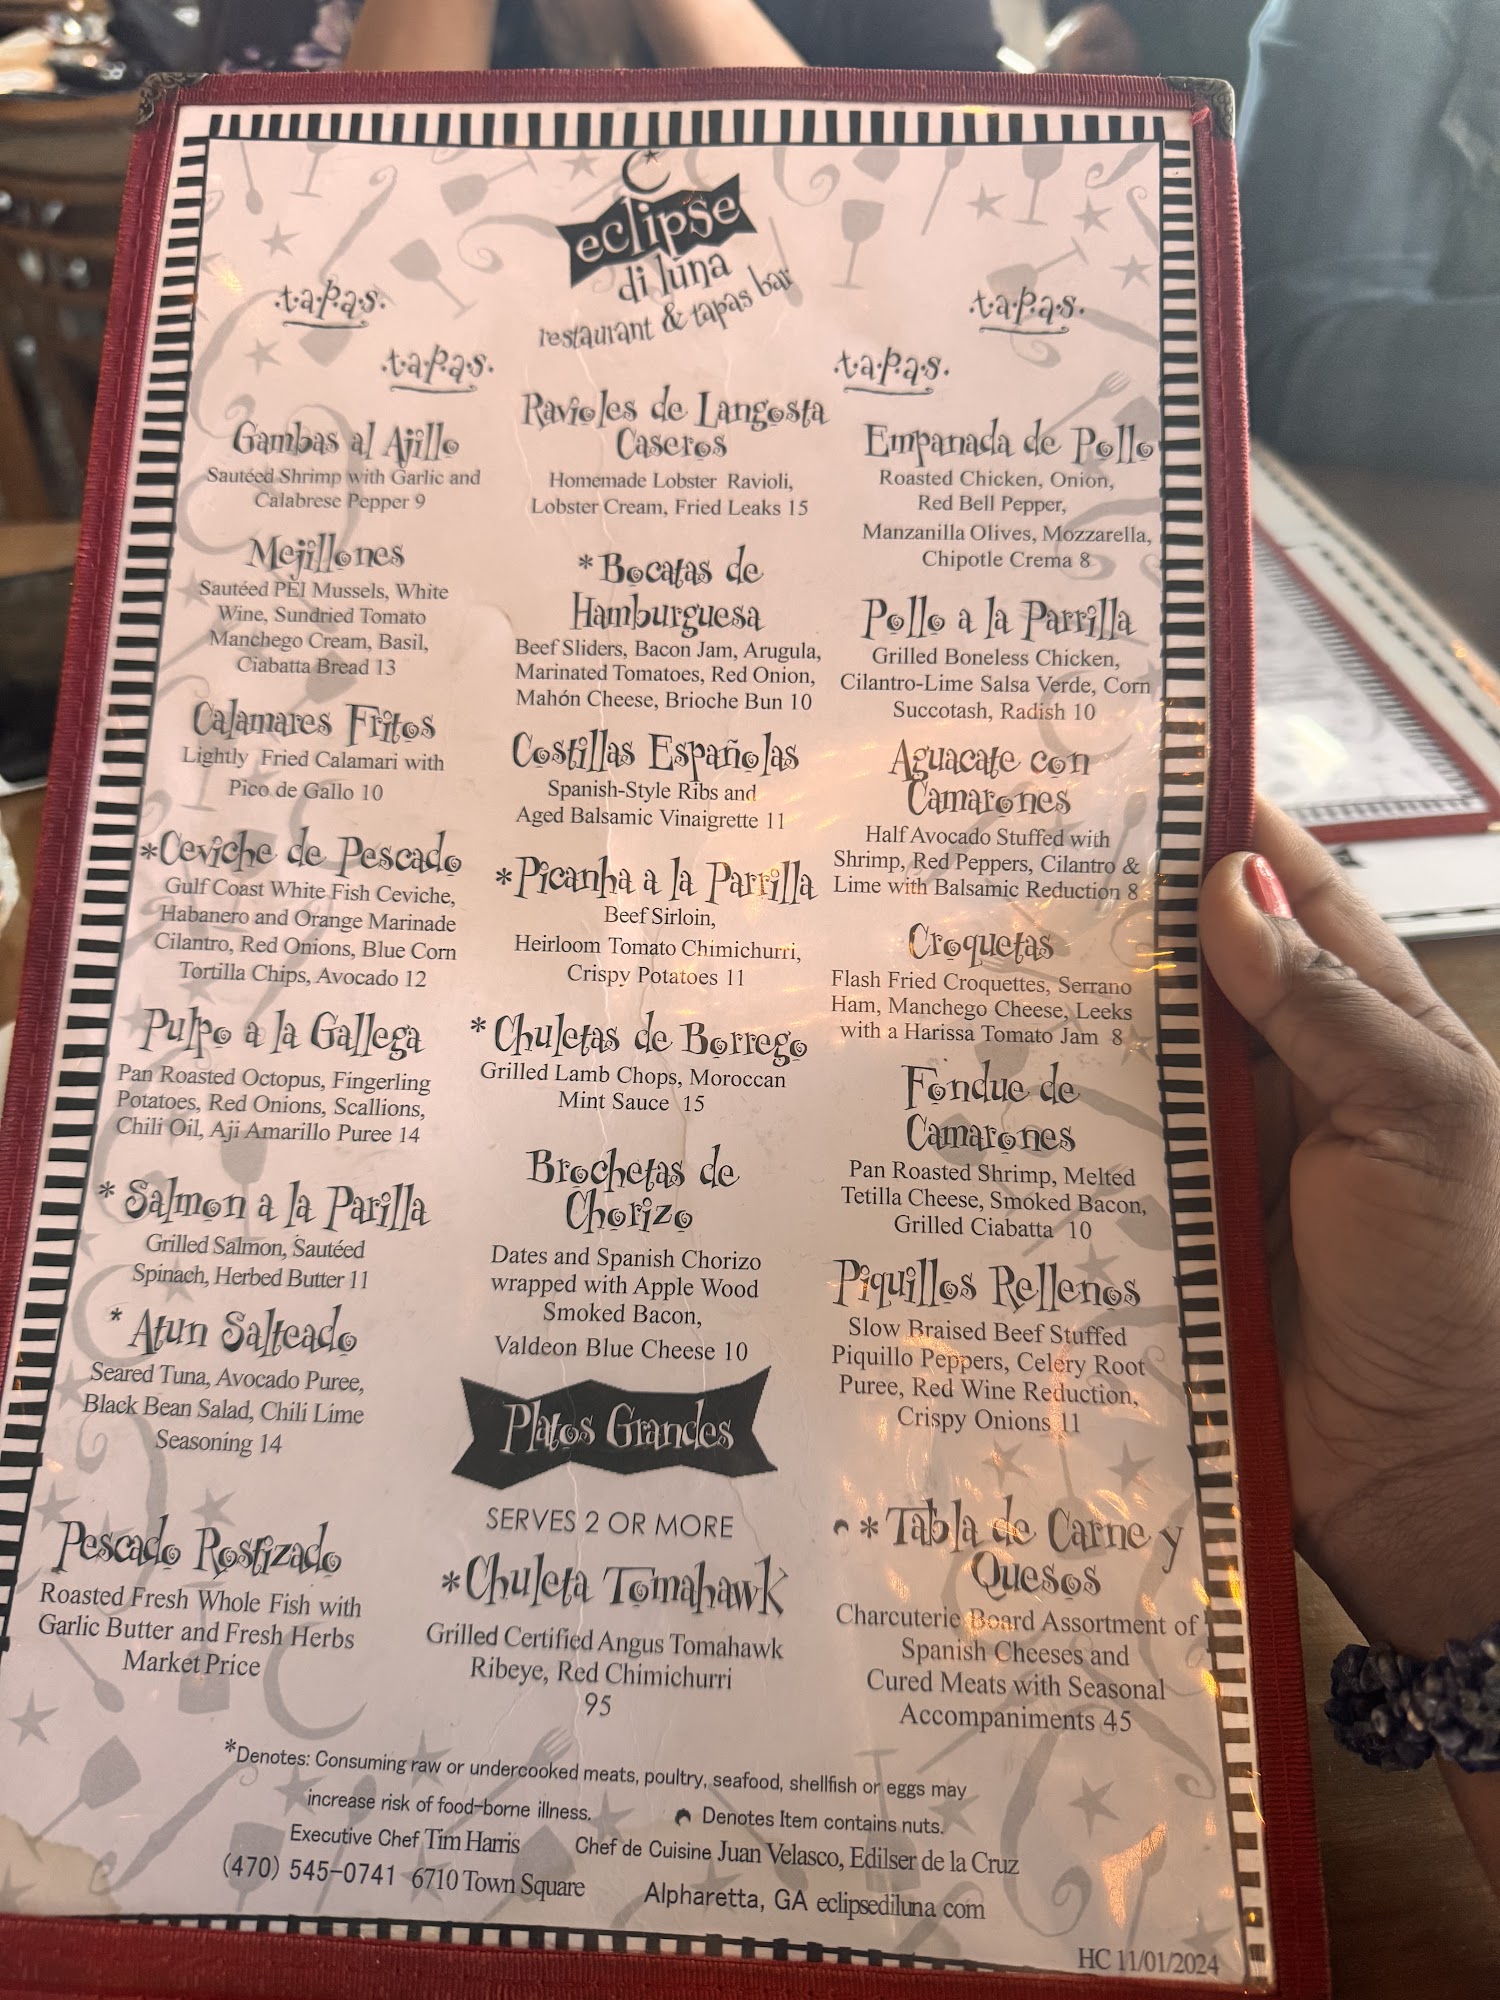 eclipse
di luna
restaurant & tapas bar
.t.a.p.a.s.
.t.a.p.a.s.
.t.a.p.a.s.
.t.a.p.a.s.
Gambas al Ajillo
Sautéed Shrimp with Garlic and
Calabrese Pepper 9
Mejillones
Sautéed PEI Mussels, White
Wine, Sundried Tomato
Manchego Cream, Basil,
Ciabatta Bread 13
Calamares Fritos
Lightly Fried Calamari with
Pico de Gallo 10
*Ceviche de Pescado
Gulf Coast White Fish Ceviche,
Habanero and Orange Marinade
Cilantro, Red Onions, Blue Corn
Tortilla Chips, Avocado 12
Pulpo a la Gallega
Pan Roasted Octopus, Fingerling
Potatoes, Red Onions, Scallions,
Chili Oil, Aji Amarillo Puree 14
* Salmon a la Parilla
Grilled Salmon, Sautéed
Spinach, Herbed Butter 11
* Atun Salteado
Seared Tuna, Avocado Puree,
Black Bean Salad, Chili Lime
Seasoning 14
Ravioles de Langosta
Caseros
Homemade Lobster Ravioli,
Lobster Cream, Fried Leaks 15
*Bocatas de
Hamburguesa
Beef Sliders, Bacon Jam, Arugula,
Marinated Tomatoes, Red Onion,
Mahón Cheese, Brioche Bun 10
Costillas Españolas
Spanish-Style Ribs and
Aged Balsamic Vinaigrette 11
*Picanha a la Parrilla
Beef Sirloin,
Heirloom Tomato Chimichurri,
Crispy Potatoes 11
* Chuletas de Borrego
Grilled Lamb Chops, Moroccan
Mint Sauce 15
Brochetas de
Chorizo
Dates and Spanish Chorizo
wrapped with Apple Wood
Smoked Bacon,
Valdeon Blue Cheese 10
Empanada de Pollo
Roasted Chicken, Onion,
Red Bell Pepper,
Manzanilla Olives, Mozzarella,
Chipotle Crema 8
Pollo a la Parrilla
Grilled Boneless Chicken,
Cilantro-Lime Salsa Verde, Corn
Succotash, Radish 10
Aguacate con
Camarones
Half Avocado Stuffed with
Shrimp, Red Peppers, Cilantro &
Lime with Balsamic Reduction 8
Croquetas
Flash Fried Croquettes, Serrano
Ham, Manchego Cheese, Leeks
with a Harissa Tomato Jam 8
Fondue de
Camarones
Pan Roasted Shrimp, Melted
Tetilla Cheese, Smoked Bacon,
Grilled Ciabatta 10
Piquillos Rellenos
Slow Braised Beef Stuffed
Piquillo Peppers, Celery Root
Puree, Red Wine Reduction,
Crispy Onions 11
Platos Grandes
SERVES 2 OR MORE
Pescado Rostizado
Roasted Fresh Whole Fish with
Garlic Butter and Fresh Herbs
Market Price
*Chuleta Tomahawk
Grilled Certified Angus Tomahawk
Ribeye, Red Chimichurri
95
* Tabla de Carne y
Quesos
Charcuterie Board Assortment of
Spanish Cheeses and
Cured Meats with Seasonal
Accompaniments 45
*Denotes: Consuming raw or undercooked meats, poultry, seafood, shellfish or eggs may
increase risk of food-borne illness. Denotes Item contains nuts.
Executive Chef Tim Harris Chef de Cuisine Juan Velasco, Edilser de la Cruz
(470) 545-0741 6710 Town Square Alpharetta, GA eclipsediluna com
HC 11/01/2024